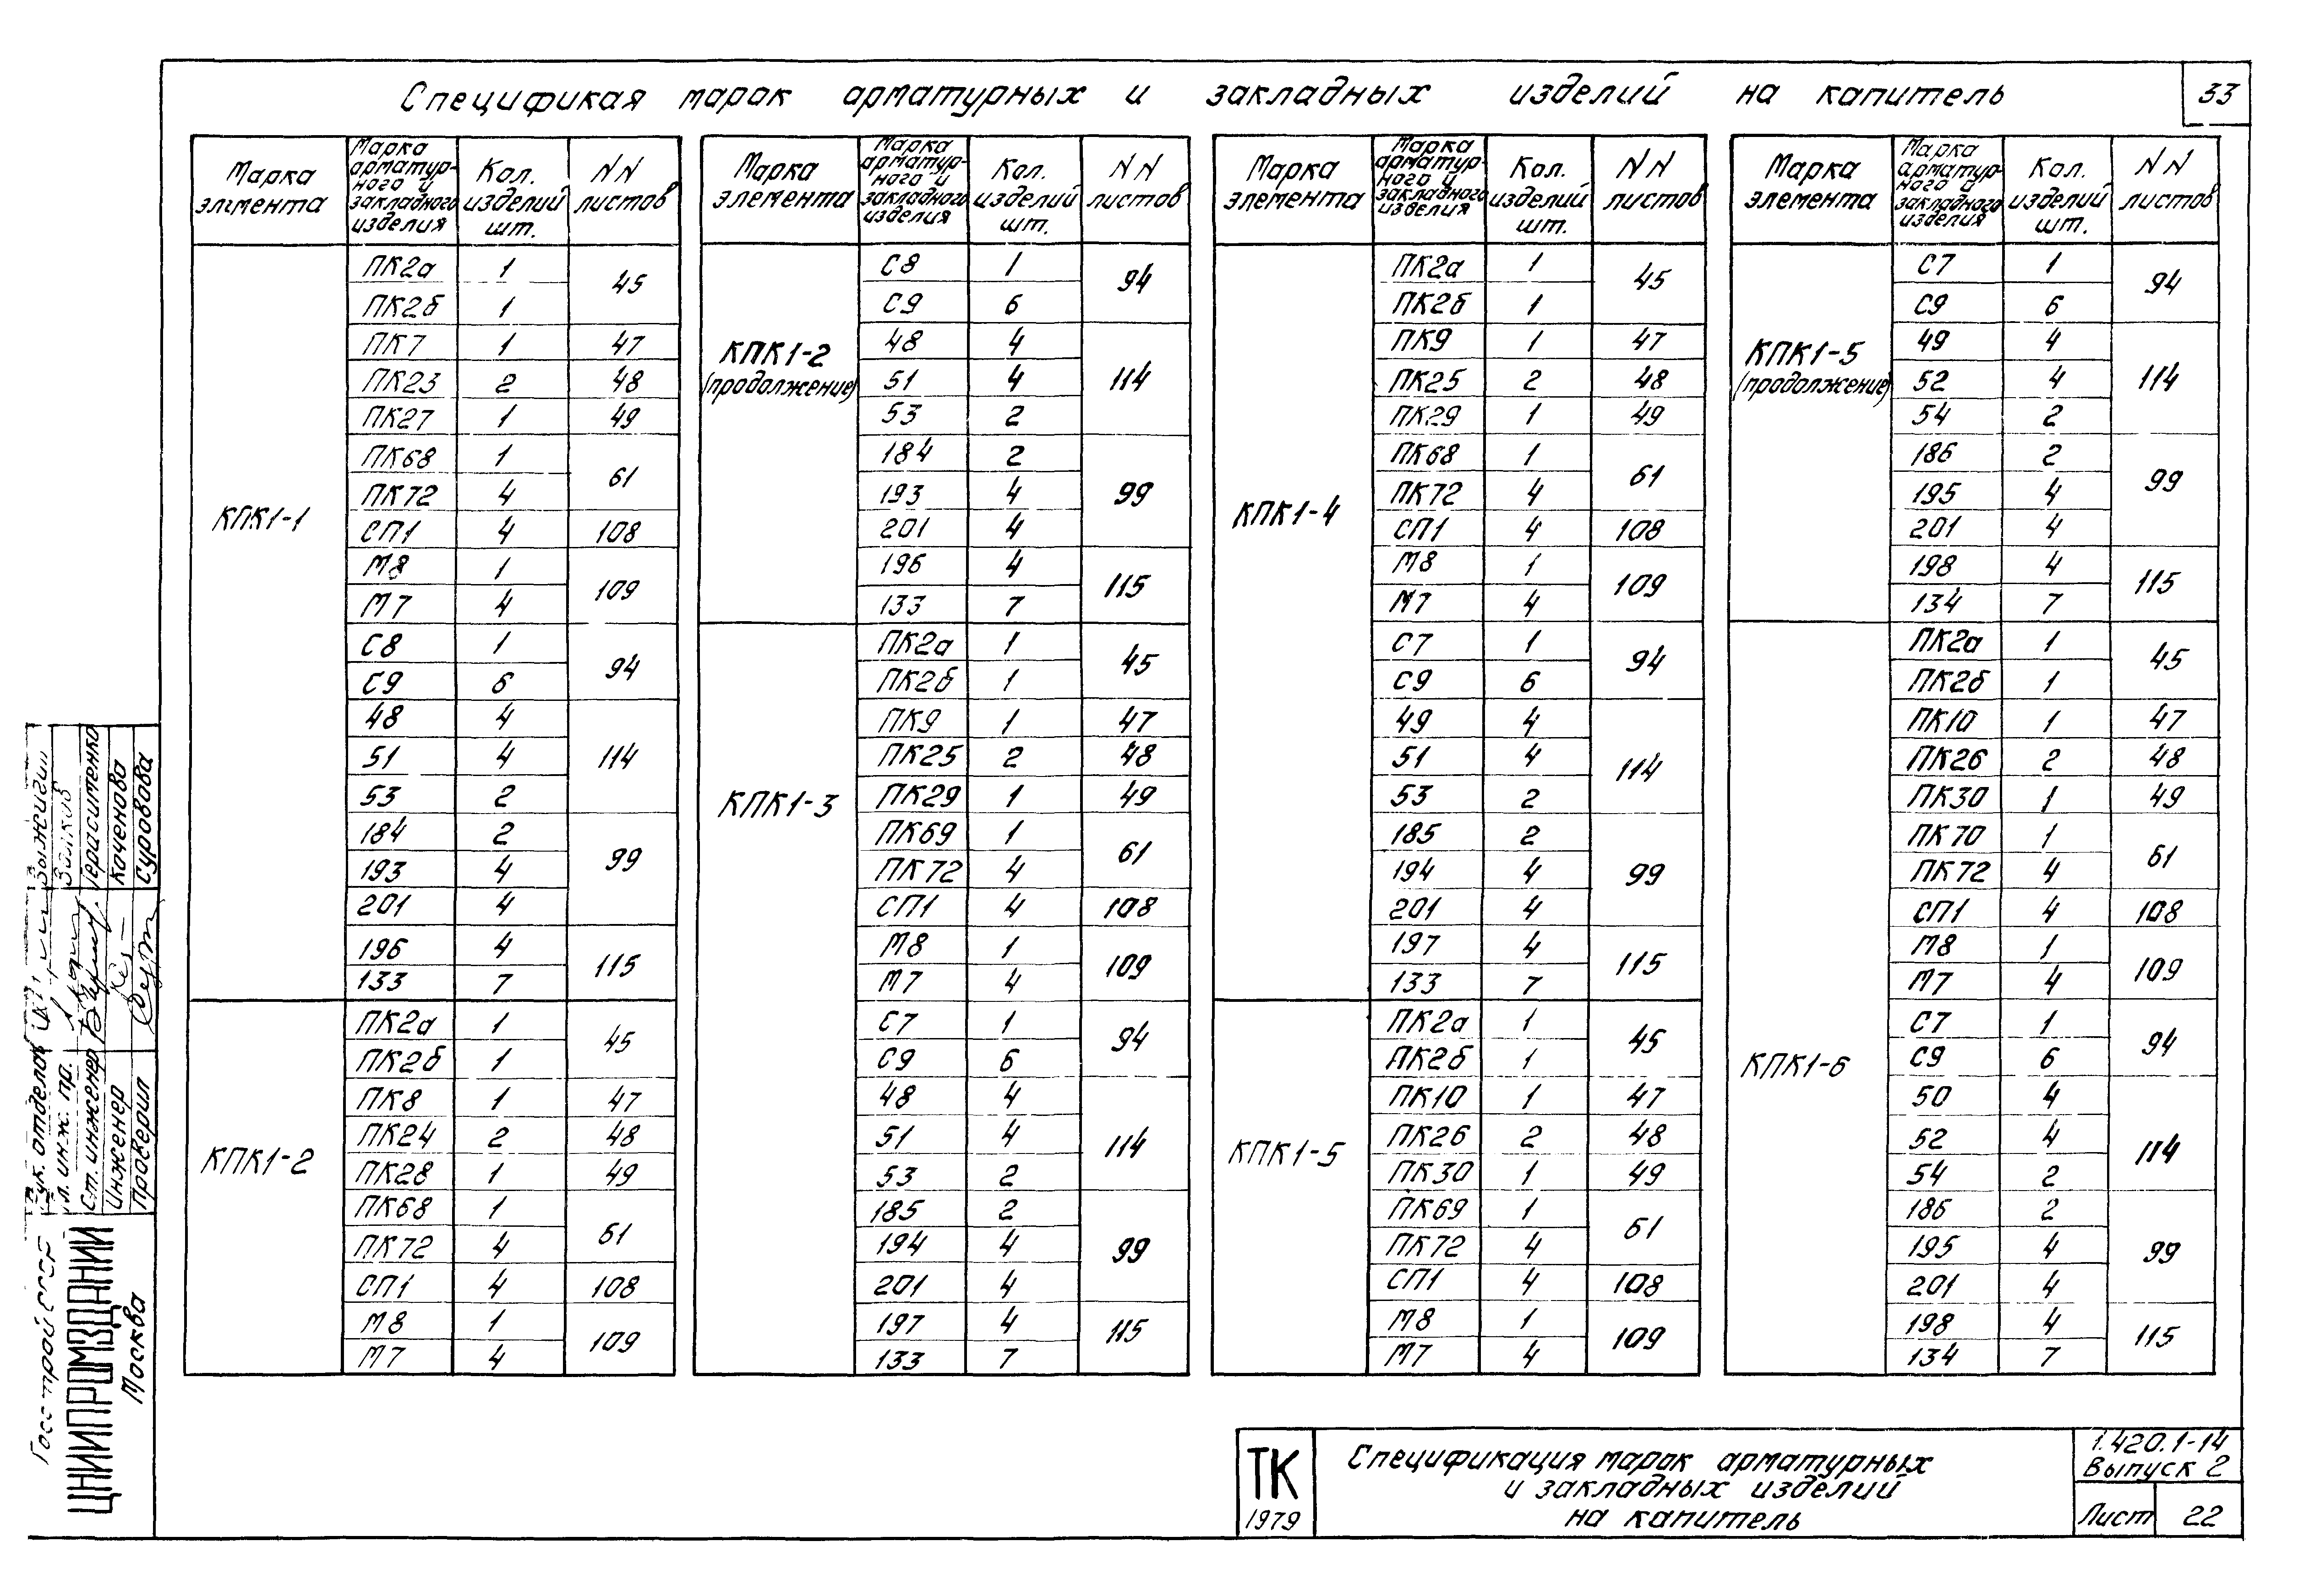 Спецификая марок арматурных и закладных изделий на капитель
33
Марка элемента
Марка арматурного и закладного изделия
Кол. изделий шт.
NN листов
КПК1-1
ПК2а 1 45
ПК2б 1
ПК7 1 47
ПК23 2 48
ПК27 1 49
ПК68 1 61
ПК72 4
СП1 4 108
М8 1 109
М7 4
С8 1 94
С9 6
48 4 114
51 4
53 2
184 2 99
193 4
201 4
196 4 115
133 7
КПК1-2
ПК2а 1 45
ПК2б 1
ПК8 1 47
ПК24 2 48
ПК28 1 49
ПК68 1 61
ПК72 4
СП1 4 108
М8 1 109
М7 4
Марка элемента
Марка арматурного и закладного изделия
Кол. изделий шт.
NN листов
КПК1-2
(продолжение)
С8 1 94
С9 6
48 4 114
51 4
53 2
184 2 99
193 4
201 4
196 4 115
133 7
КПК1-3
ПК2а 1 45
ПК2б 1
ПК9 1 47
ПК25 2 48
ПК29 1 49
ПК69 1 61
ПК72 4
СП1 4 108
М8 1 109
М7 4
С7 1 94
С9 6
48 4 114
51 4
53 2
185 2 99
194 4
201 4
197 4 115
133 7
Марка элемента
Марка арматурного и закладного изделия
Кол. изделий шт.
NN листов
КПК1-4
ПК2а 1 45
ПК2б 1
ПК9 1 47
ПК25 2 48
ПК29 1 49
ПК68 1 61
ПК72 4
СП1 4 108
М8 1 109
М7 4
С7 1 94
С9 6
49 4 114
51 4
53 2
185 2 99
194 4
201 4
197 4 115
133 7
КПК1-5
ПК2а 1 45
ПК2б 1
ПК10 1 47
ПК26 2 48
ПК30 1 49
ПК69 1 61
ПК72 4
СП1 4 108
М8 1 109
М7 4
Марка элемента
Марка арматурного и закладного изделия
Кол. изделий шт.
NN листов
КПК1-5
(продолжение)
С7 1 94
С9 6
49 4 114
52 4
54 2
186 2 99
195 4
201 4
198 4 115
134 7
КПК1-6
ПК2а 1 45
ПК2б 1
ПК10 1 47
ПК26 2 48
ПК30 1 49
ПК70 1 61
ПК72 4
СП1 4 108
М8 1 109
М7 4
С7 1 94
С9 6
50 4 114
52 4
54 2
186 2 99
195 4
201 4
198 4 115
134 7
Госстрой СССР
ЦНИИПРОМЗДАНИЙ
Москва
Рук. отдела
Гл. инж. пр. Волков
Ст. инженер Герасименко
Инженер Каченова
Проверил Суровова
ТК
1979
Спецификация марок арматурных
и закладных изделий
на капитель
1.420.1-14
Выпуск 2
Лист 22